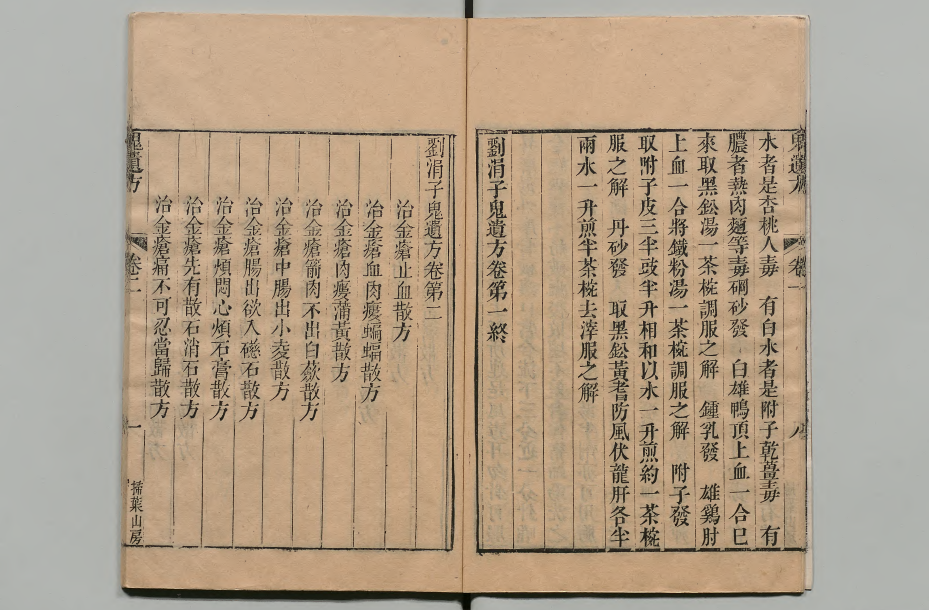 鬼遺方 卷一 八
水者是杏桃人毒　有白水者是附子乾薑毒　有
膿者熱肉麵等毒碙砂發　白雄鴨頂上血一合已
來取黑鈆湯一茶椀調服之解　鍾乳發　雄鷄肘
上血一合將鐵粉湯一茶椀調服之解　附子發
取附子皮三半豉半升相和以水一升煎約一茶椀
服之解　丹砂發　取黑鈆黃耆防風伏龍肝各半
兩水一升煎半茶椀去滓服之解
劉涓子鬼遺方卷第一終
劉涓子鬼遺方卷第二
治金瘡止血散方
治金瘡血肉瘻蝙蝠散方
治金瘡肉瘻蒲黃散方
治金瘡箭肉不出白蘞散方
治金瘡中腸出小麥散方
治金瘡腸出欲入磁石散方
治金瘡煩悶心煩石膏散方
治金瘡先有散石消石散方
治金瘡痛不可忍當歸散方
鬼遺方 卷二 一 掃葉山房